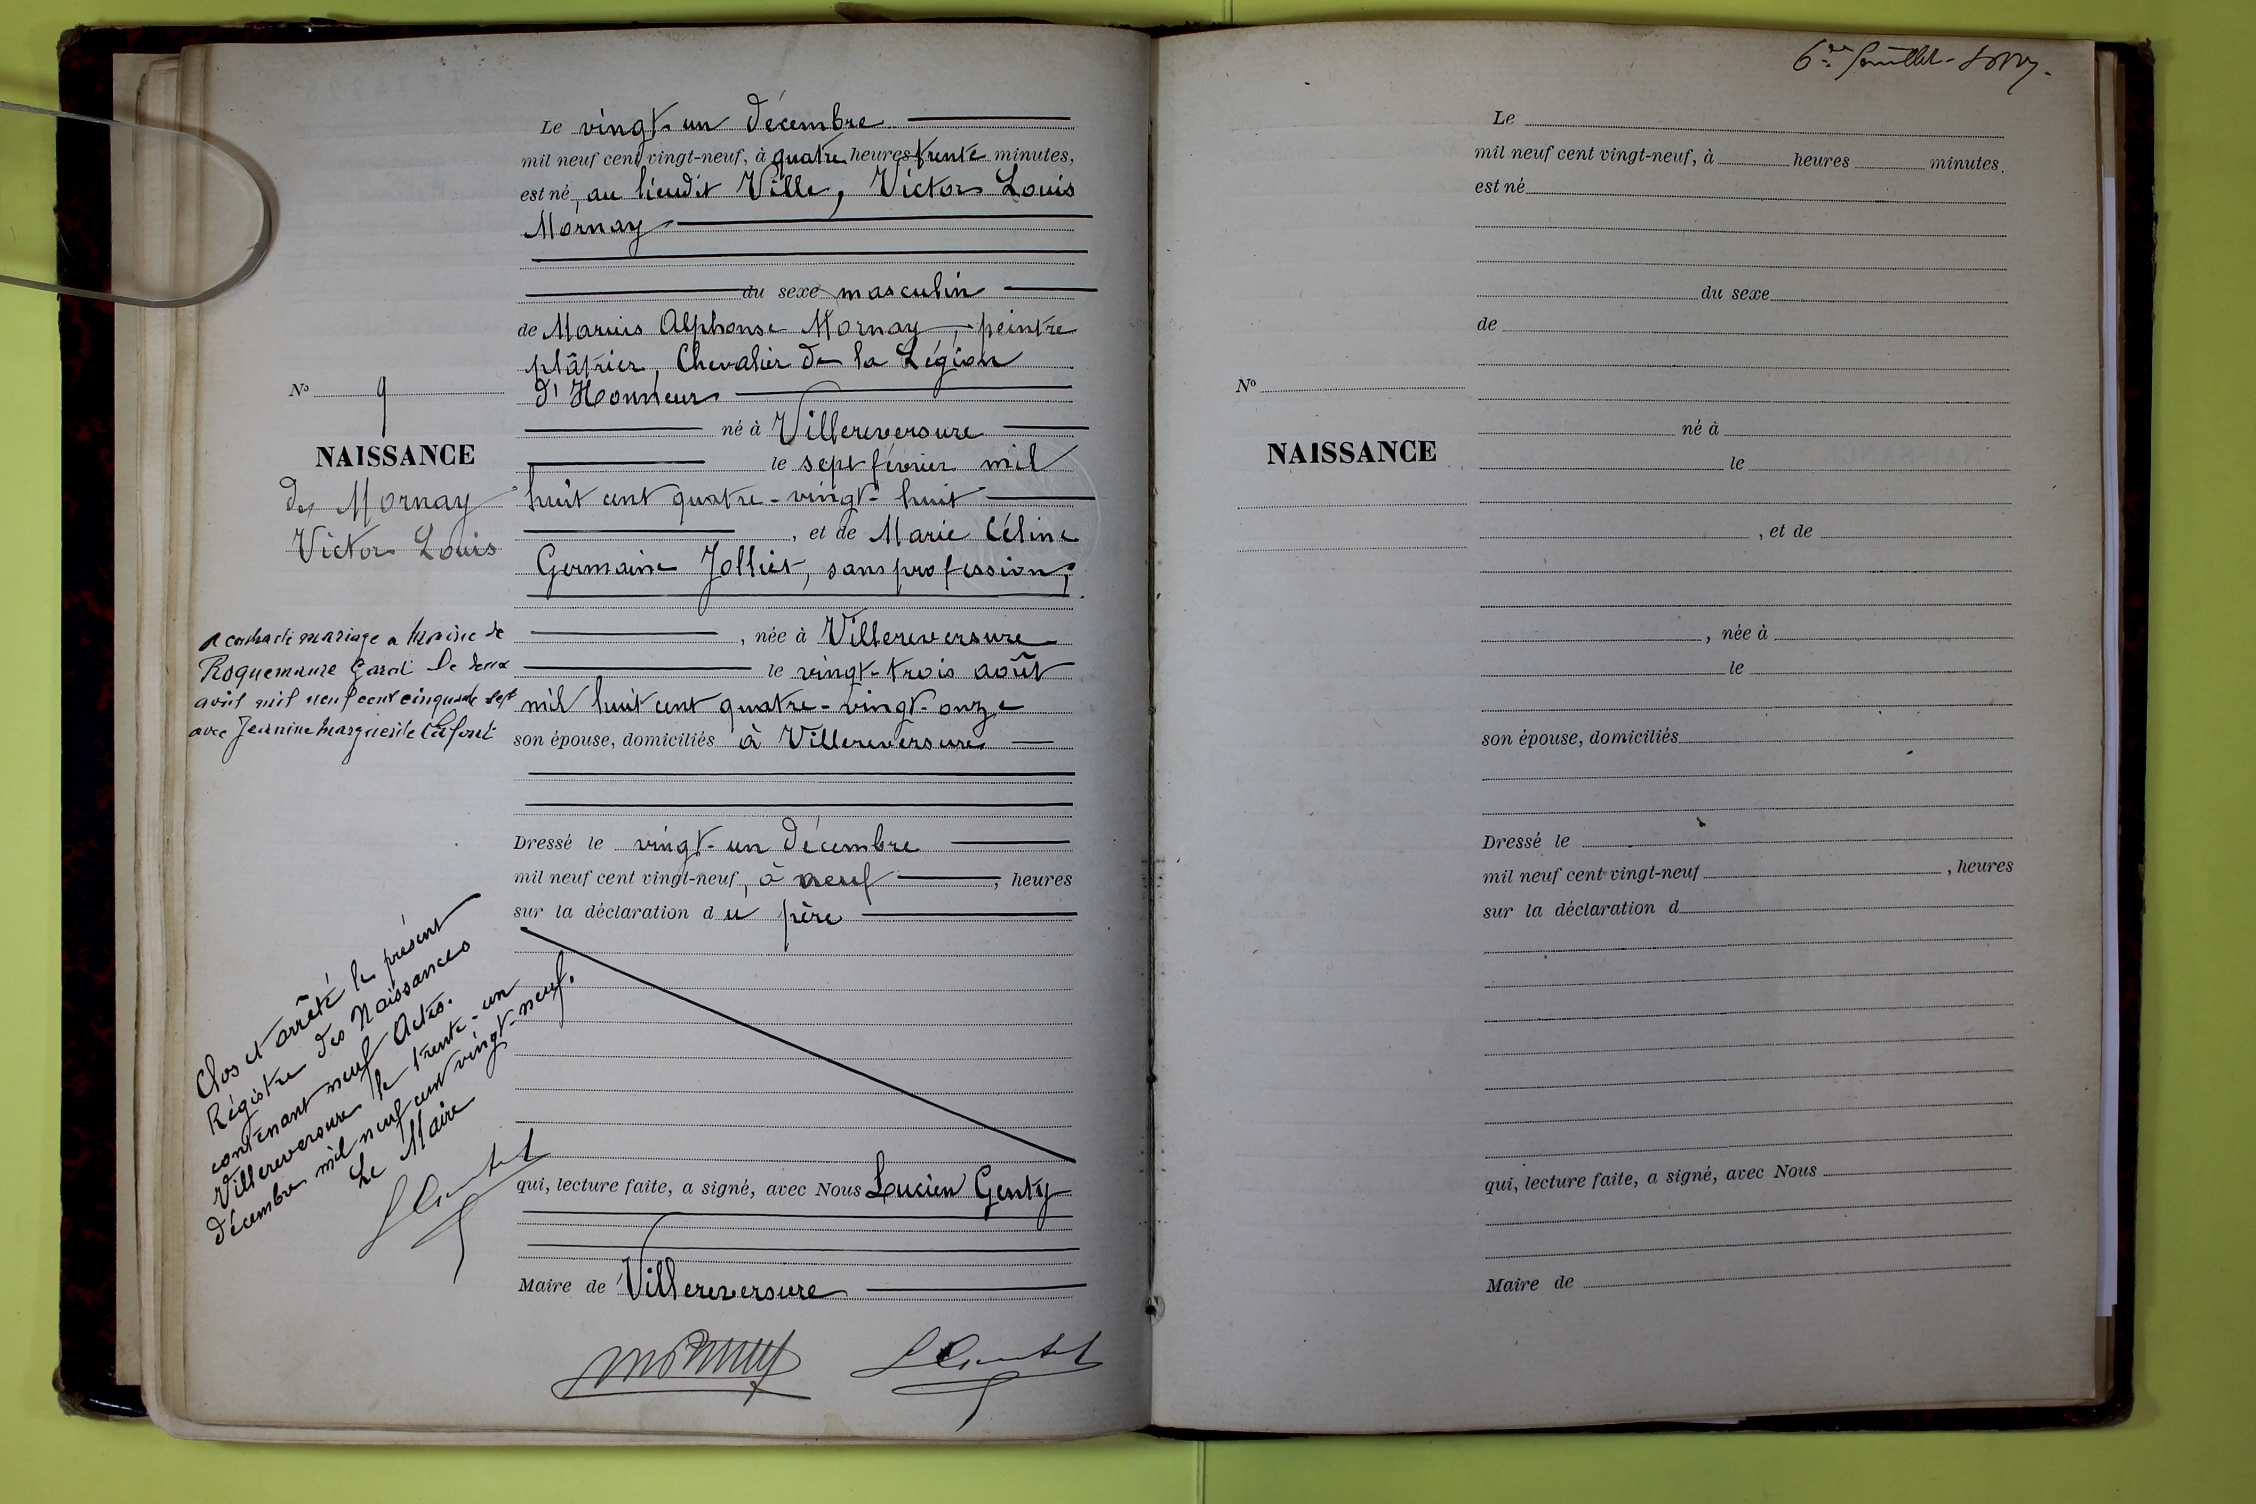 N° 9
NAISSANCE
de Mornay
Victor Louis
a contracté mariage a
Roquemaure Gard le deux
avril mil neuf cent cinquante sept
avec Jeanine Marguerite
Clos et arrêté le présent
Régistre des Naissances
contenant neuf Actes.
Villereversure le trente-un
décembre mil neuf cent vingt-neuf.
Le Maire
Le vingt-un décembre
mil neuf cent vingt-neuf, à quatre heures trente minutes,
est né, au lieudit Ville, Victor Louis
Mornay
du sexe masculin
de Marius Alphonse Mornay, peintre
plâtrier, Chevalier de la Légion
d'Honneur
né à Villereversure
le sept février mil
huit cent quatre-vingt-huit
, et de Marie Céline
Germaine Jollier, sans profession,
, née à Villereversure
le vingt-trois août
mil huit cent quatre-vingt-onze
son épouse, domiciliés à Villereversure
Dressé le vingt-un décembre
mil neuf cent vingt-neuf, à neuf, heures
sur la déclaration du père
qui, lecture faite, a signé, avec Nous Lucien Genty
Maire de Villereversure
Mornay
Le
mil neuf cent vingt-neuf, à heures minutes.
est né
du sexe
de
N°
né à
NAISSANCE
le
, et de
, née à
le
son épouse, domiciliés
Dressé le
mil neuf cent vingt-neuf , heures
sur la déclaration d
qui, lecture faite, a signé, avec Nous
Maire de